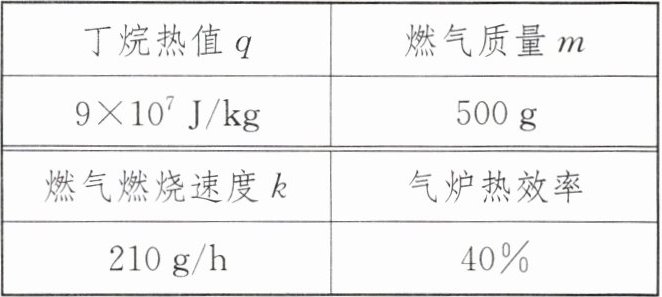 丁烷热值 q 燃气质量 m
9×10⁷ J/kg 500 g
燃气燃烧速度 k 气炉热效率
210 g/h 40%